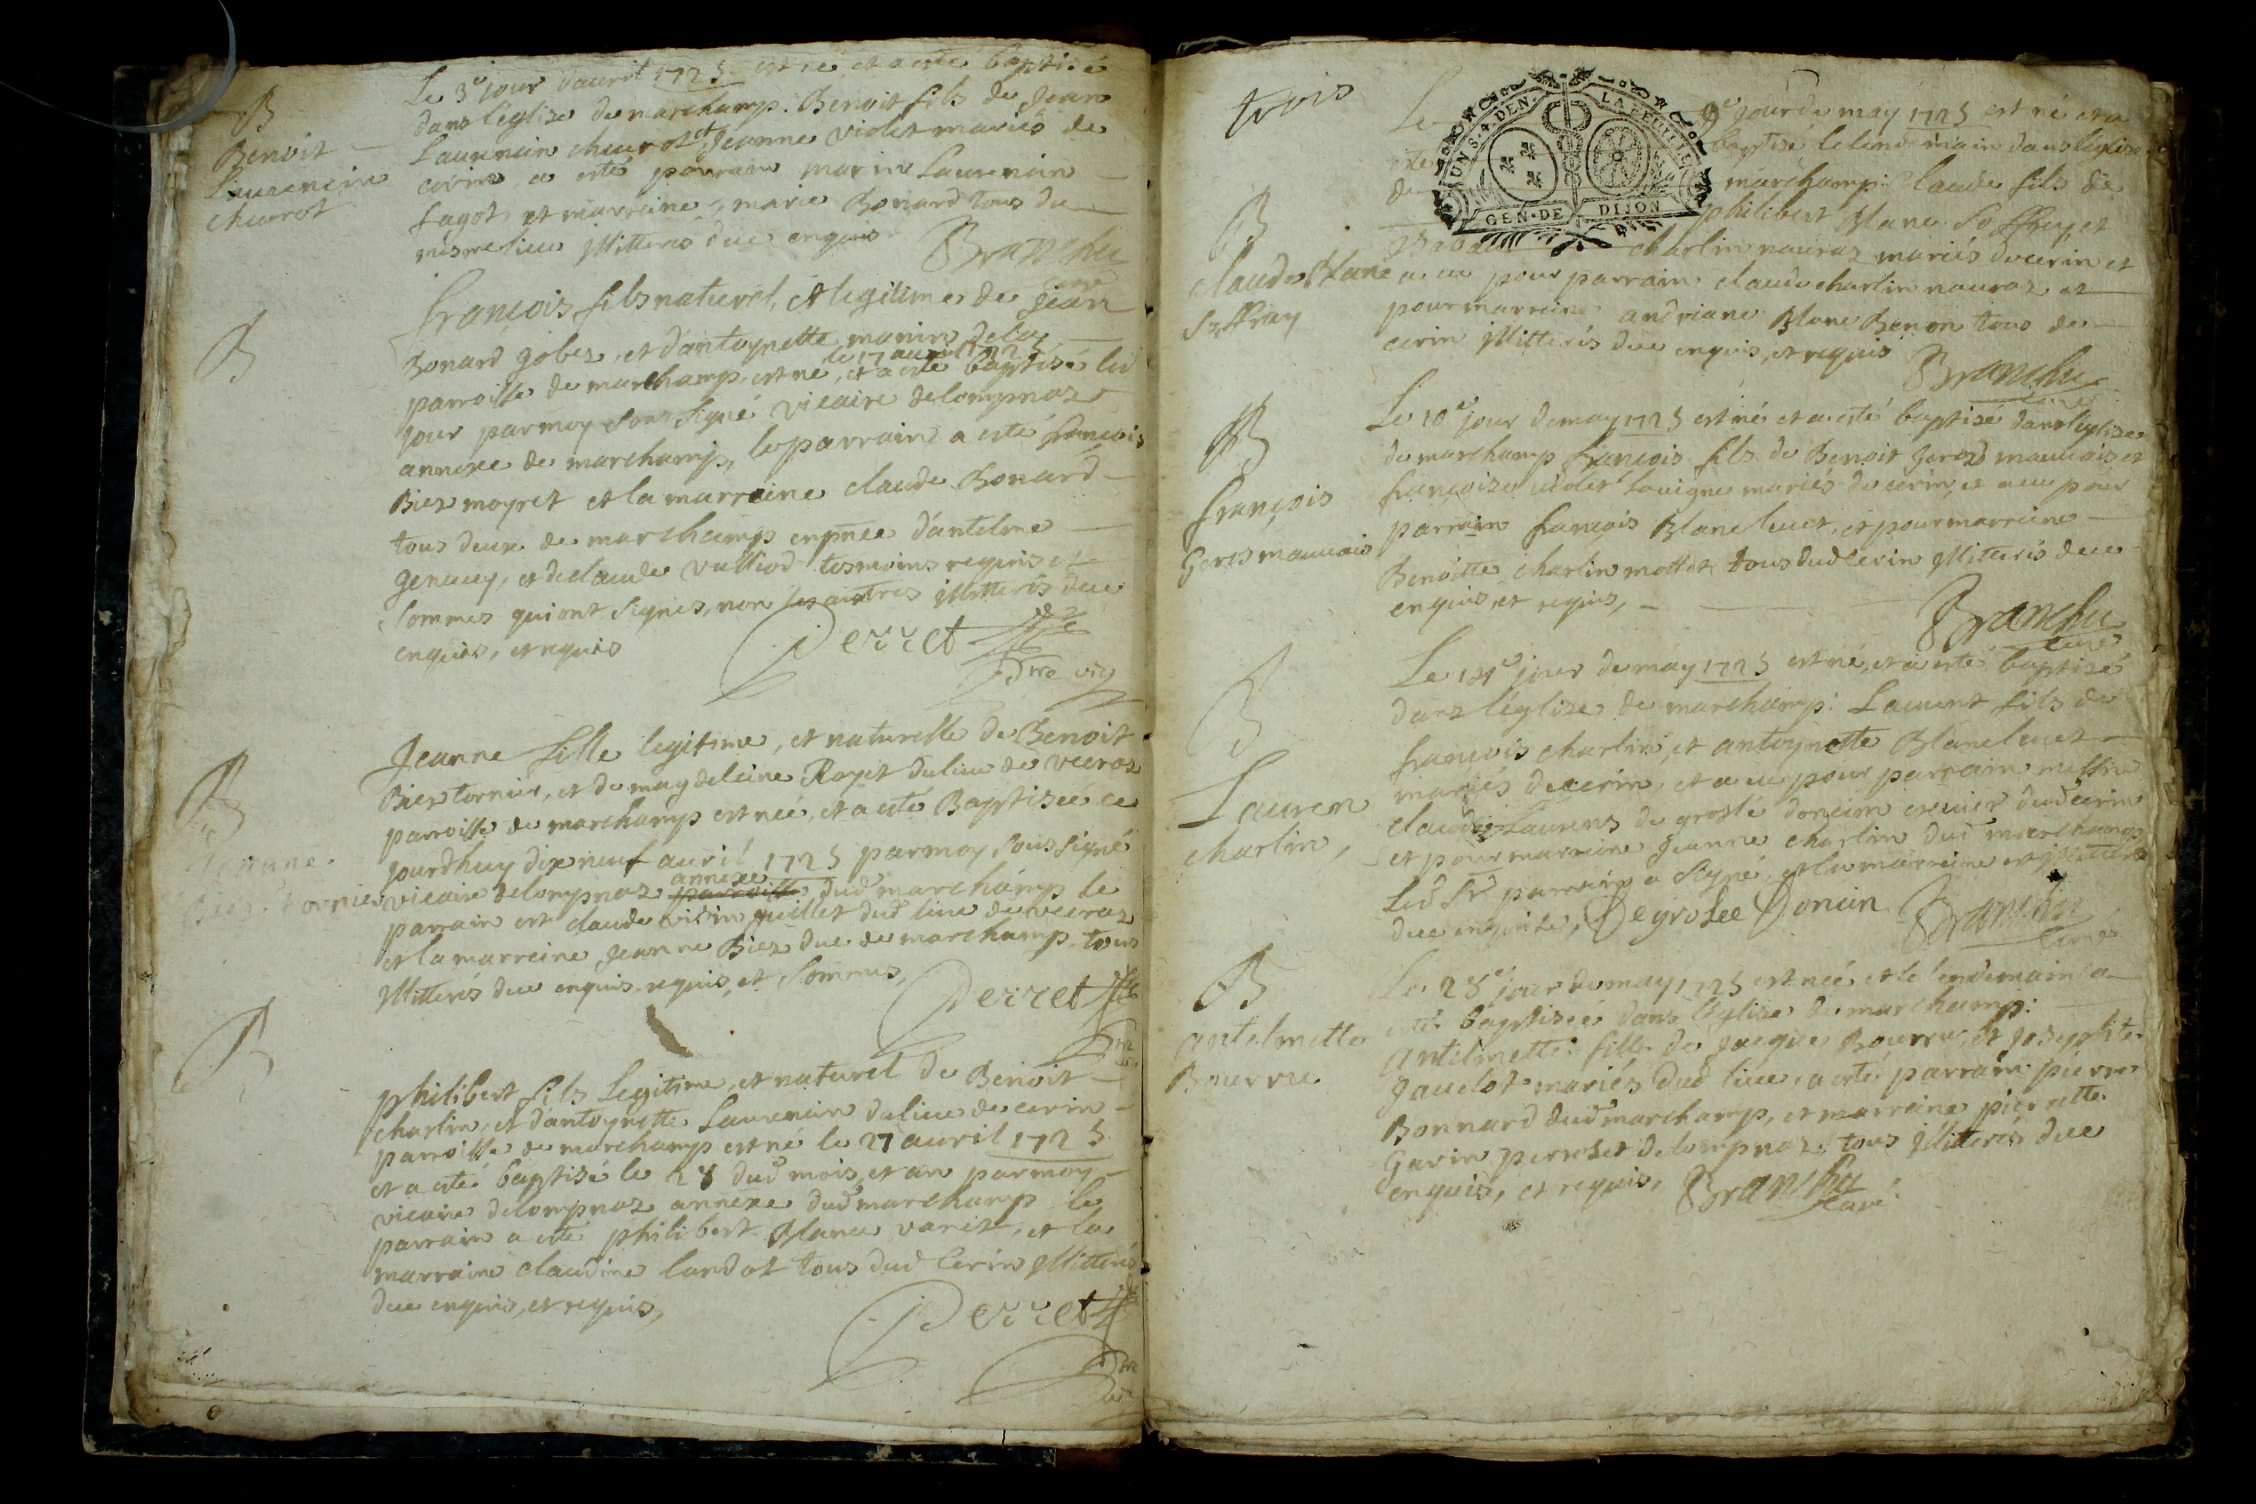 B
Benoit
Laurencin
cheurot
Le 3e jour dauril 1725 est né et a esté baptisé
dans léglise de marchamp. Benoit fils de Jean
Laurencin cheurot et Jeanne violet mariés de
cerin a esté parrain marin Laurencin
fagot et marreine, marie Bonard tous du
mesme lieu illitterés due enquis
Branchu
curé
B
françois fils naturel, et legitime de jean
Bonard gobez, et dantoynette marin de la
le 17 auril 1725
parroisse de marchamp est né, et a esté baptisé led
jour par moy sous signé vicaire delompnaz
annexe de marchamp, le parrain a esté françois
Biez moyret et la marreine claude Bonard
tous deux de marchamp en pnce dantelme
genaey, et de claude vulliod tesmoins requis et
sommes qui ont signés, non les autres illitterés due
enquis, et requis
Perret
ptre vic
B
Jeanne
Biez Tornier
Jeanne fille legitime, et naturelle de Benoit
Biez tornier, et de magdeleine Royet du lieu de veeraz
parroisse de marchamp est née, et a esté Baptiseé ce
jourdhuy dix neuf auril 1725 par moy sous signé
annexe
vicaire delompnaz parroisse dud marchamp le
parrain est claude guillet dud lieu de veeraz
et la marreine Jeanne Biez due de marchamp tous
illitterés due enquis requis, et sommes,
Perret
ptre
vic
B
philibert fils Legitime, et naturel de Benoit
charlin, et dantoynette Laurencin du lieu de cerin
parroisse de marchamp est né le 27 auril 1725
et a esté baptisé le 28 dud mois, et an par moy
vicaire delompnaz annexe dud marchamp le
parrain a esté philibert Blanc varet, et la
marraine claudine landot tous dud Cerin illitterés
due enquis, et requis,
Perret
ptre
vic
trois
UN S. 4. DEN. LA FEUILLE
GEN. DE DIJON
B
claude Blanc
Soffray
Le 9e jour de may 1725 est né et a
esté baptisé le lendemain dans léglise
de marchamp: claude fils de
philibert Blanc Soffrey, et
charlin nauraz mariés de cerin et
a eu pour parrain claude charlin nauraz et
pour marreine andriane Blanc Benon tous de
cerin illitterés due enquis, et requis
Branchu
curé
B
françois
Geroz mauuais
Le 10e jour de may 1725 est né et a esté baptisé dans léglise
de marchamp françois fils de Benoit Geroz mauuais et
françoise violet Louigne mariés de cerin, et a eu pour
parrain francois Blanc luet, et pour marreine
Benoitte charlin mottet tous dud Cerin illiterés due
enquis, et requis,
Branchu
curé
B
Lauren
charlin,
Le 14e jour de may 1725 est né, et a esté baptisé
dans léglise de marchamp: Laurent fils de
francois charlin, et antoynette Blanc luet
mariés de cerin, et a eu pour parrain messire
claude Laurens de groslé doncin ecuier dud cerin
et pour marreine Jeanne charlin dud marchamp
Led Sr parrain a signé, et la marreine est illitterée
due enquise, Degrolee Doncin
Branchu
curé
B
antelmette
Bourru
Le 28e jour de may 1725 est née et le lendemain a
esté baptiseé dans léglise de marchamp:
Antelmette fille de jacques Bourru, et josephte
Jauelot mariés dud lieu, a esté parrain pierre
Bonnard dud marchamp, et marreine pierrette
Gavin perroset delompnaz, tous illiterés due
enquis, et requis,
Branchu
curé